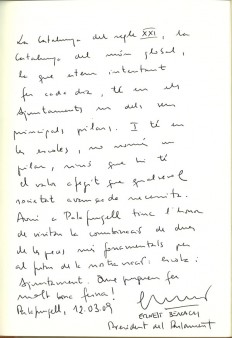 La Catalunya del segle XXI, la
Catalunya del món global,
la que estem intentant
fer cada dia, té en els
Ajuntaments un dels seus
principals pilars. I té en
les escoles, no només un
pilar, sinó que hi té
el valor afegit que qualsevol
societat avançada necessita.
Avui a Palafrugell tinc l'honor
de visitar la combinació de dues
de les peces més fonamentals per
al futur de la nostra nació: escola i
Ajuntament. Que puguem fer
molt bona feina!
Palafrugell, 12.03.09
ERNEST BENACH
President del Parlament